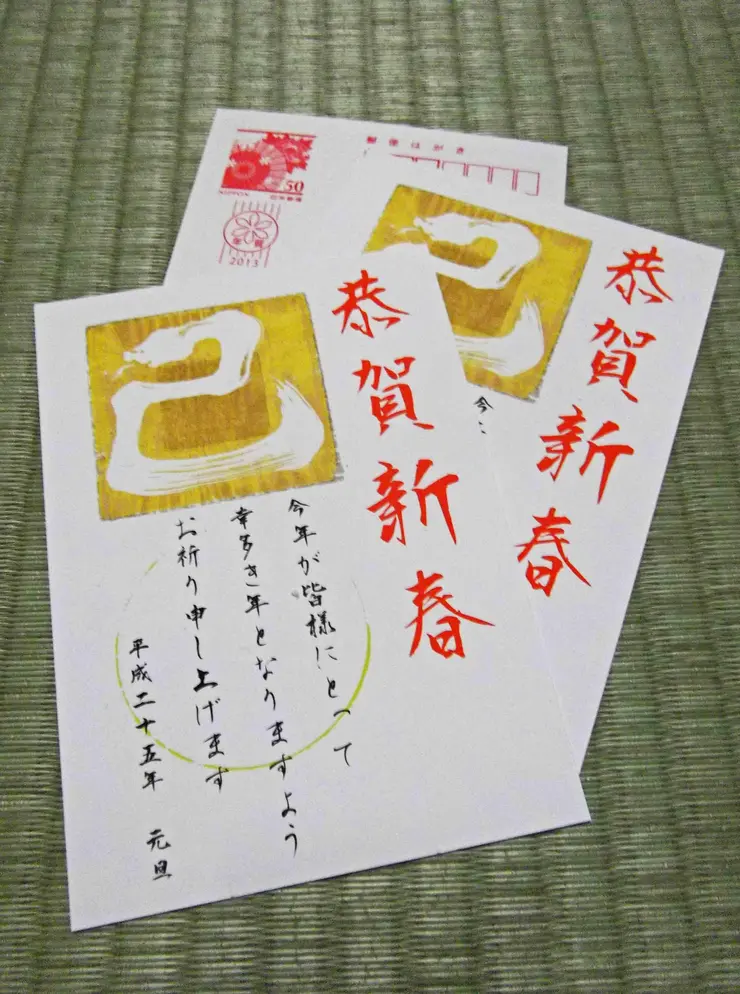 郵便はがき
50
NIPPON
日本郵便
年賀
2013
恭賀新春
己
今
恭賀新春
己
今年が皆様にとって
幸多き年となりますよう
お祈り申し上げます
平成二十五年 元旦